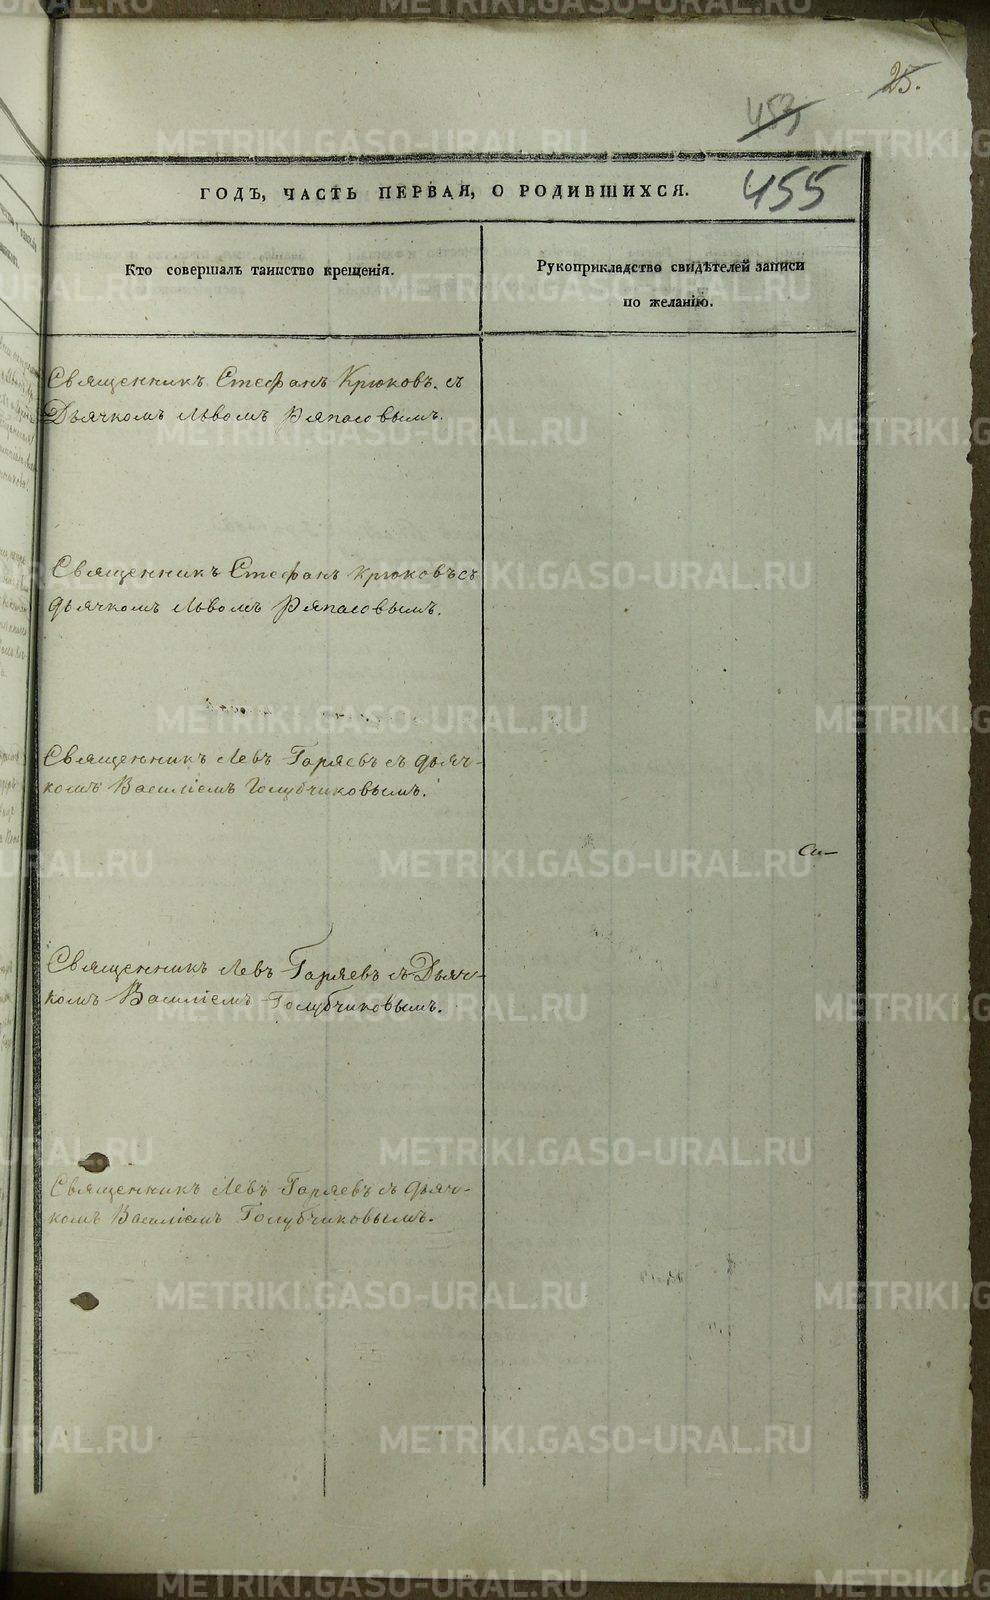 25.
453
455
ГОДЪ, ЧАСТЬ ПЕРВАЯ, О РОДИВШИХСЯ.
Кто совершалъ таинство крещенія.
Рукоприкладство свидѣтелей записи
по желанію.
Священникъ Стефанъ Крюковъ. съ
Дьячкомъ Львомъ Ряпасовымъ.
Священникъ Стефанъ Крюковъ съ
дьячкомъ Львомъ Ряпасовымъ.
Священникъ Левъ Гаряевъ съ дьяч-
комъ Василіемъ Голубчиковымъ.
Священникъ Левъ Гаряевъ съ Дьяч-
комъ Василіемъ Голубчиковымъ.
Священникъ Левъ Гаряевъ съ дьяч-
комъ Василіемъ Голубчиковымъ.
METRIKI.GASO-URAL.RU